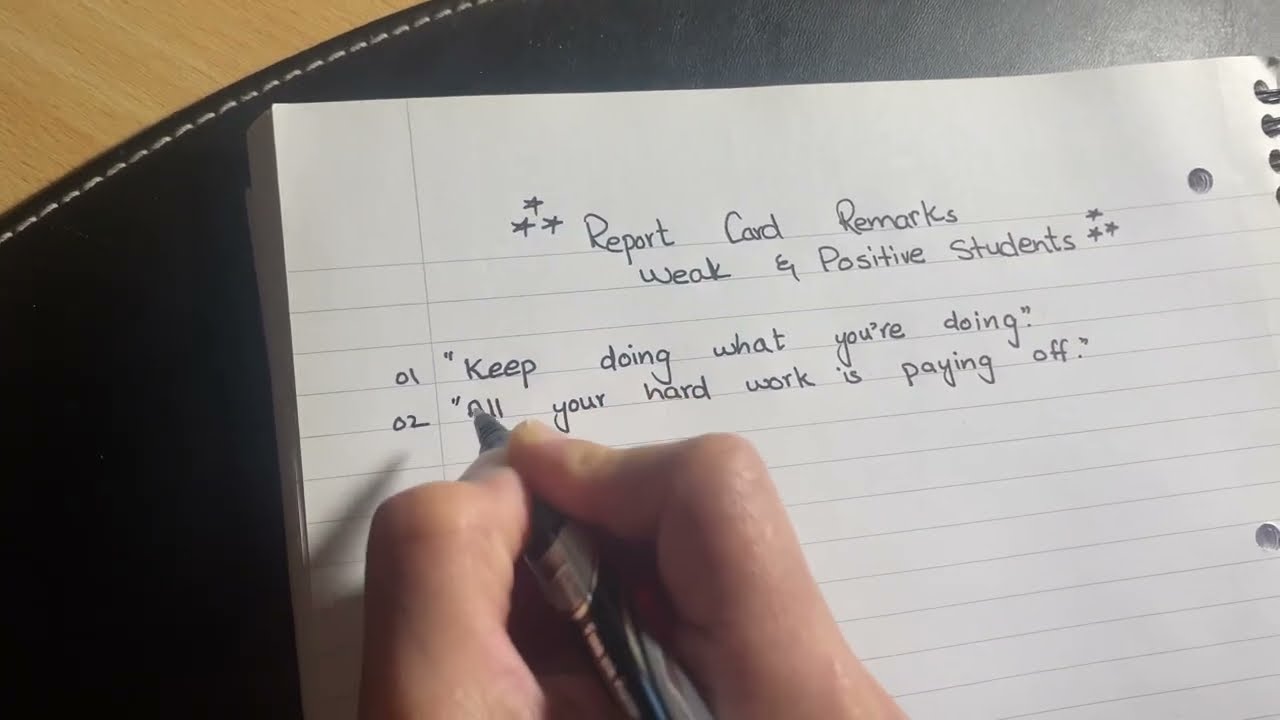 Report Card Remarks
Weak & Positive Students
01 "Keep doing what you're doing."
02 "All your hard work is paying off."